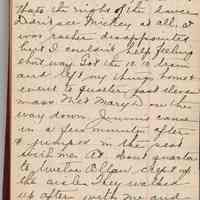 thats the night of the dance.
Didn't see Mickey at all, & I
was rather disappointed
but I couldn't help feeling
that way. Got the 10:10 train
and left my things home &
went to quarter past eleven
mass. Met Mary D on the
way down. Jimmie came
in a few minutes after
& jumped in the seat
with me. At about quarter
to twelve
the aisle. They walked
up after with me and